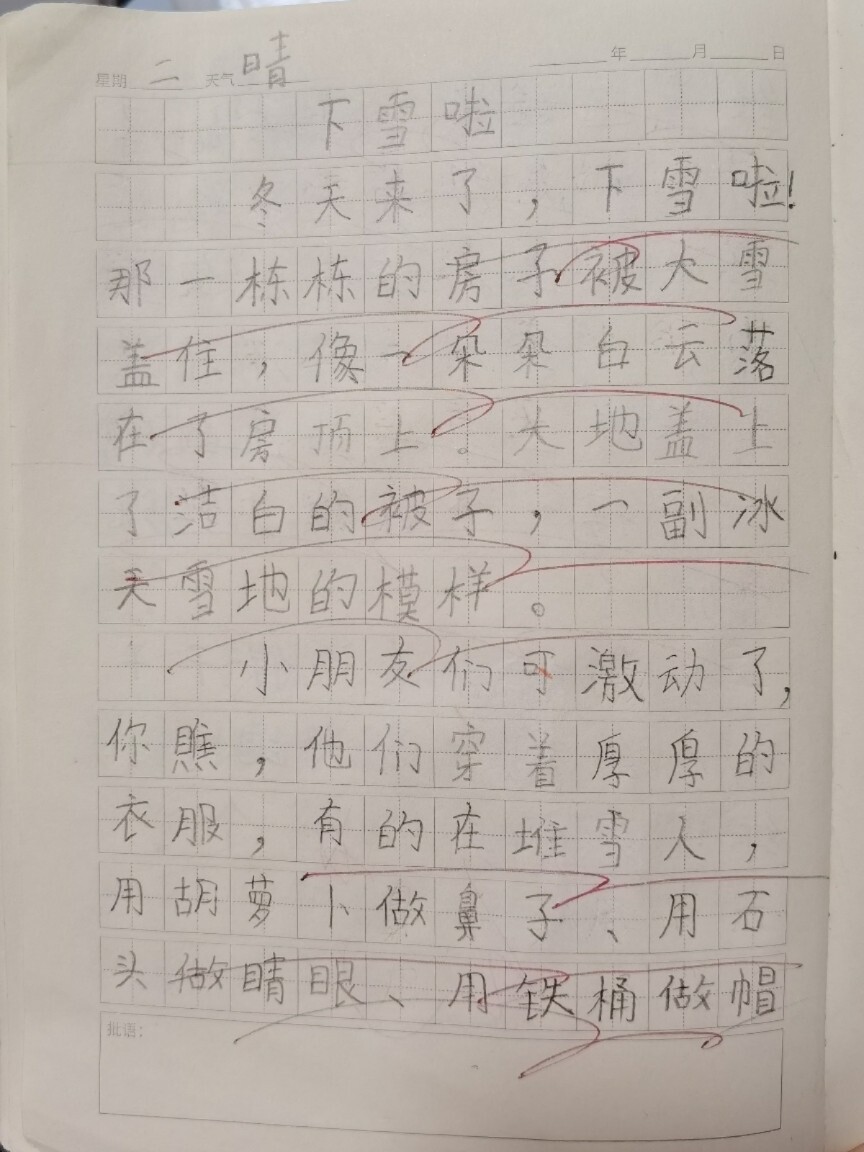 星期 二 天气 晴 年 月 日
下雪啦
冬天来了，下雪啦！
那一栋栋的房子被大雪
盖住，像一朵朵白云落
在了房顶上。大地盖上
了洁白的被子，一副冰
天雪地的模样。
小朋友们可激动了，
你瞧，他们穿着厚厚的
衣服，有的在堆雪人，
用胡萝卜做鼻子、用石
头做睛眼、用铁桶做帽
批语：